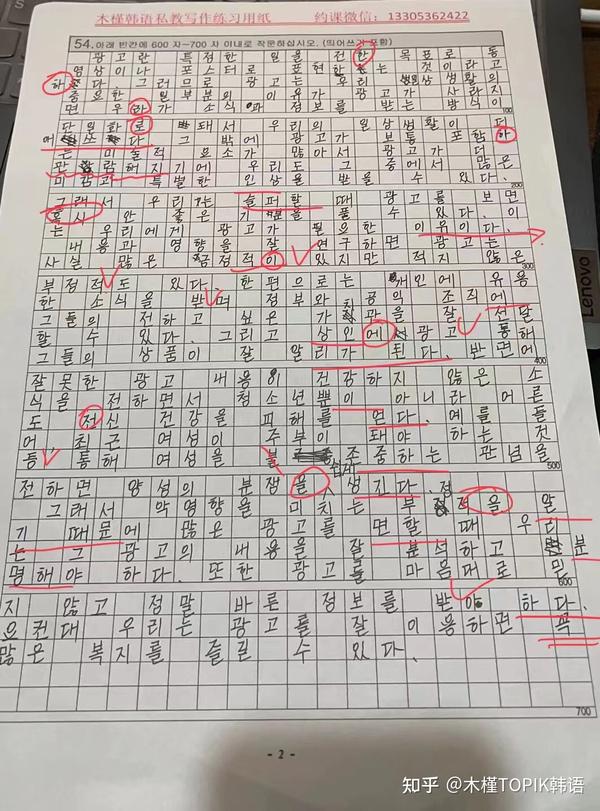 木槿韩语私教写作练习用纸 约课微信：13305362422
54. 아래 빈칸에 600 자~700 자 이내로 작문하십시오. (띄어쓰기 포함)
광고란 특정한 일을 전한 목표로 동
영상이나 포스터로 표현하는 것이라고
하 다. 그러므로 광고는 우리 일상생활의
중요한 일부분의 이유가 광고가 사라지
면 우라가 소식과 정보를 받는 방식이
100
단일화로 돼서 우리의 일상생활이 더
다. 그 밖에 광고가 보통 포함하
는 미술적 요소가 많아서 광고가 더
해지기에 우리도 그 중에서 많은
미감과 특별한 인상을 받을 수 있다.
200
그래서 우리는 슬퍼할 때 광고를 보면
혹시 안 좋은 기분을 풀 수 있다. 이
는 우리에게 광고가 필요한 이유이다.
내용과 영향을 잘 연구하면 광고는
사실 많은 긍정적이 있지만 적지 않은
300
부정적도 있다. 한편으로는 개인에 유용
한 소식을 받며 정부와 공의 조직에
그들의 전하고 싶은 가치관을 잘 전달
할 수 있다. 그리고 상인에 광고 통해
그들의 상품이 잘 알리가 된다. 반면에
400
잘못한 광고 내용이 건강하지 않은 소
식을 전하면서 청소년뿐이 아니라 어른
도 전신 건강을 피해를 면다. 예를 들
어, 최근 여성이 주부이 돼야 하는 것
통 통해 여성을 불 존중하는 관념을
500
전하면 양성의 분쟁을 쉽게 생긴다.
그래서 악영향을 미치는 부정적을 알
기 때문에 많은 광고를 면할 때 우리
는 그 광고의 내용을 잘 분석하고 분
명해야 하다. 또한 광고를 마음대로 믿
600
지 않고 정말 바른 정보를 받아 하다.
으컨대 우리는 광고를 잘 이용하면 꼭
많은 복지를 즐길 수 있다.
700
- 2 -
Lenovo
知乎 @木槿TOPIK韩语